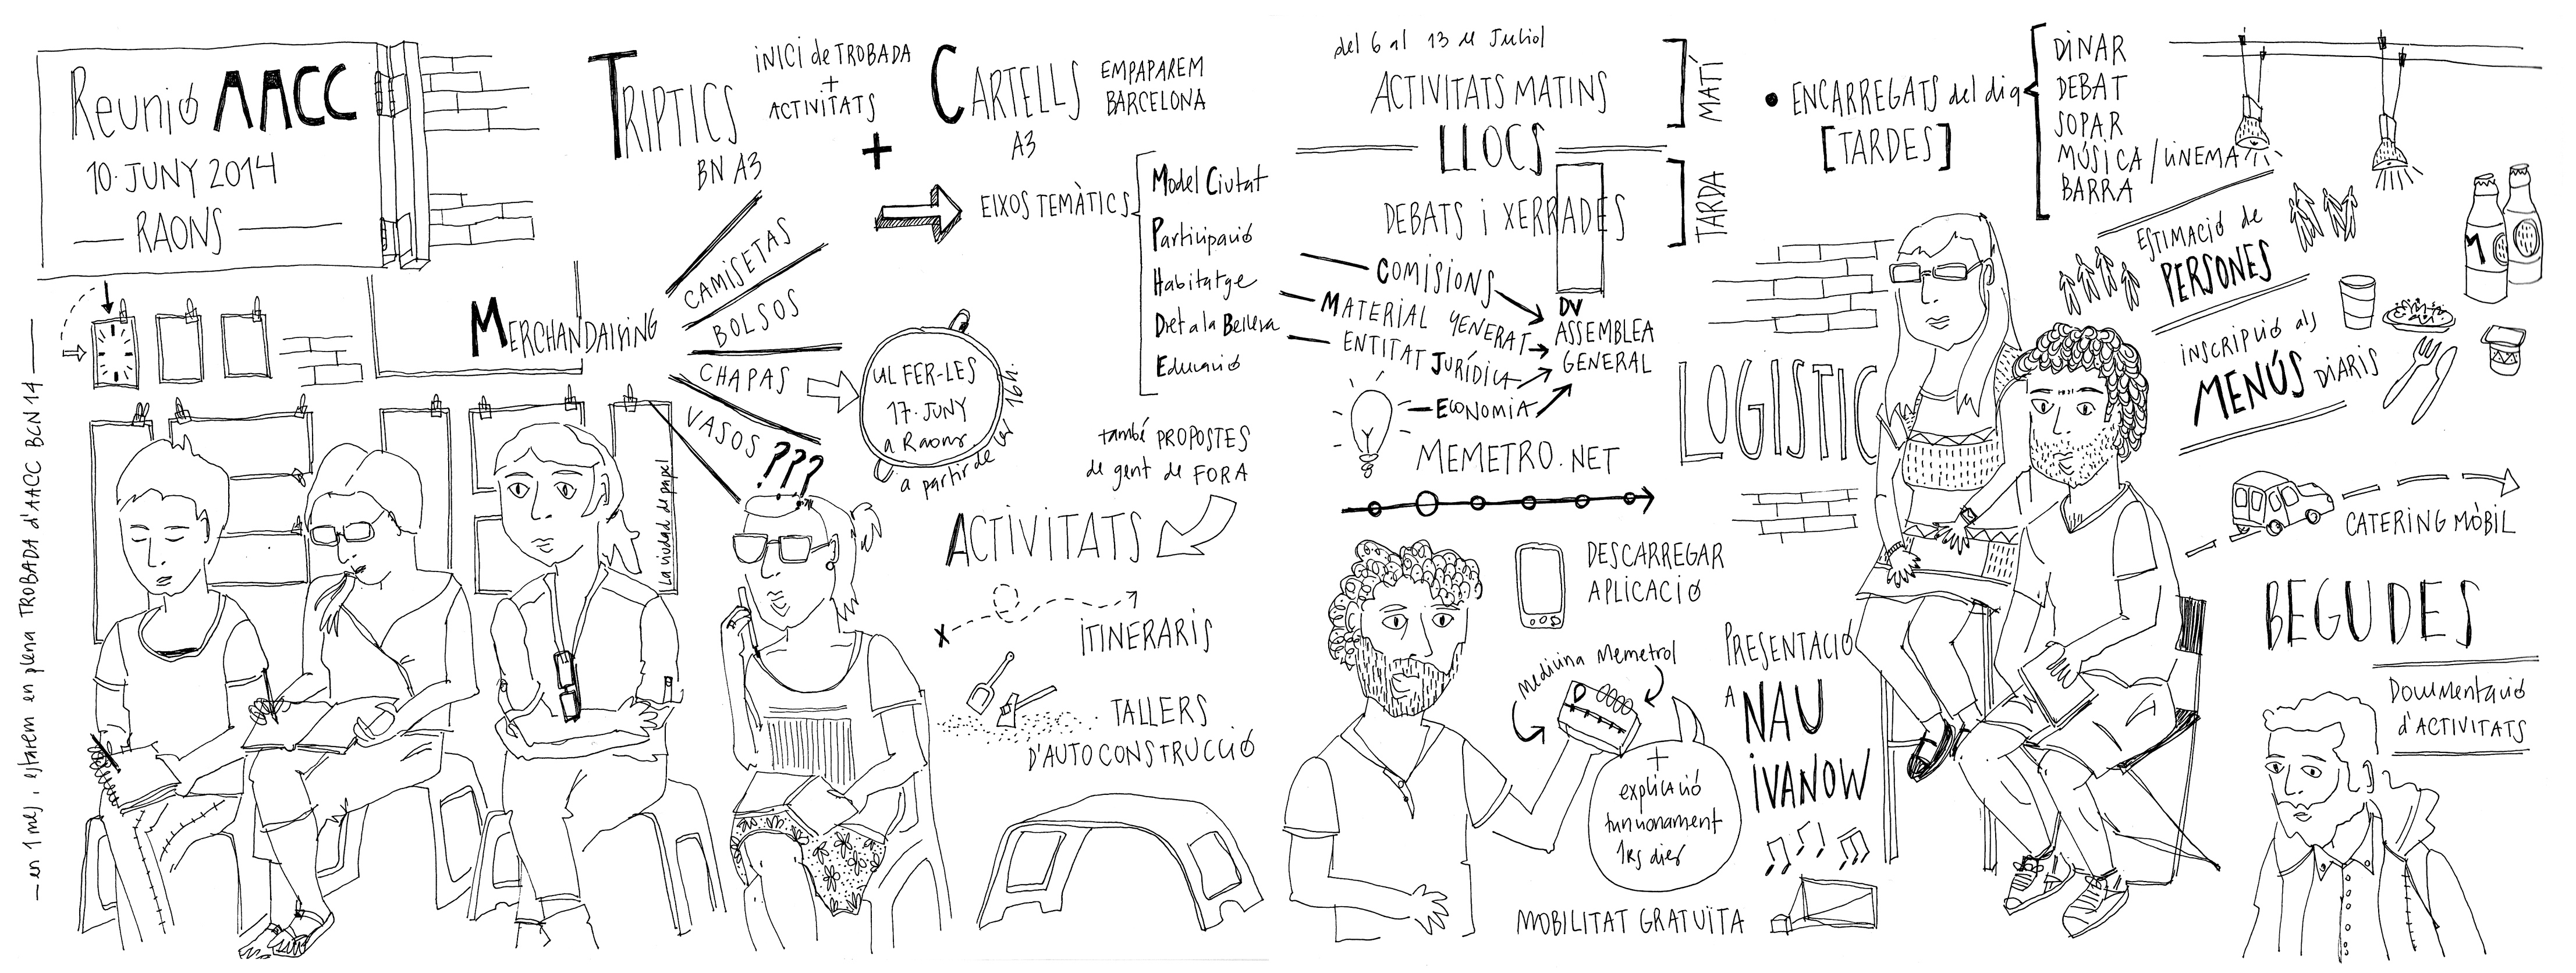 Reunió AACC
10·JUNY 2014
— RAONS —
— en 1 mes, estarem en plena TROBADA d'AACC BCN 14 —
TRIPTICS
BN A3
iNiCi de TROBADA
+
ACTIVITATS
+
CARTELLS
A3
EMPAPAREM
BARCELONA
MERCHANDAISING
CAMISETAS
BOLSOS
CHAPAS
VASOS ???
UL FER-LES
17·JUNY
a Raons
a partir de les 16h.
La viudad de papel
EIXOS TEMÀTICS
Model Ciutat
Participació
Habitatge
Dret a la Bellesa
Educació
també PROPOSTES
de gent de FORA
ACTIVITATS
X
ITINERARIS
TALLERS
D'AUTOCONSTRUCCIÓ
del 6 al 13 de Juliol
ACTIVITATS MATINS
MATÍ
LLOCS
DEBATS i XERRADES
TARDA
COMISIONS
MATERIAL GENERAT
ENTITAT JURÍDICA
ECONOMIA
DV
ASSEMBLEA
GENERAL
MEMETRO.NET
DESCARREGAR
APLICACIÓ
Medicina Memetrol
+
explicació
funcionament
1ers dies
MOBILITAT GRATUÏTA
PRESENTACIÓ
A NAU
iVANOW
• ENCARREGATS del dia
[TARDES]
DINAR
DEBAT
SOPAR
MÚSICA / CINEMA
BARRA
LOGISTIC
ESTIMACIÓ de
PERSONES
INSCRIPCIÓ als
MENÚS DIARIS
M
CATERING MÒBIL
BEGUDES
DOCUMENTACIÓ
d'ACTIVITATS